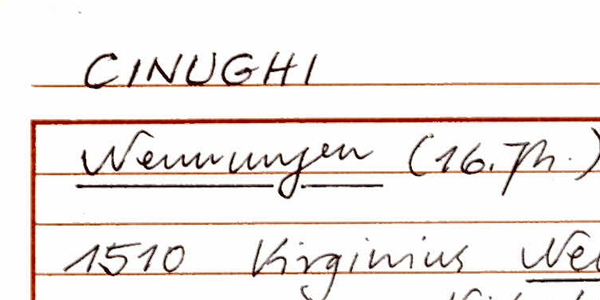 CINUGHI
Nennungen (16. Jh.)
1510 Virginius